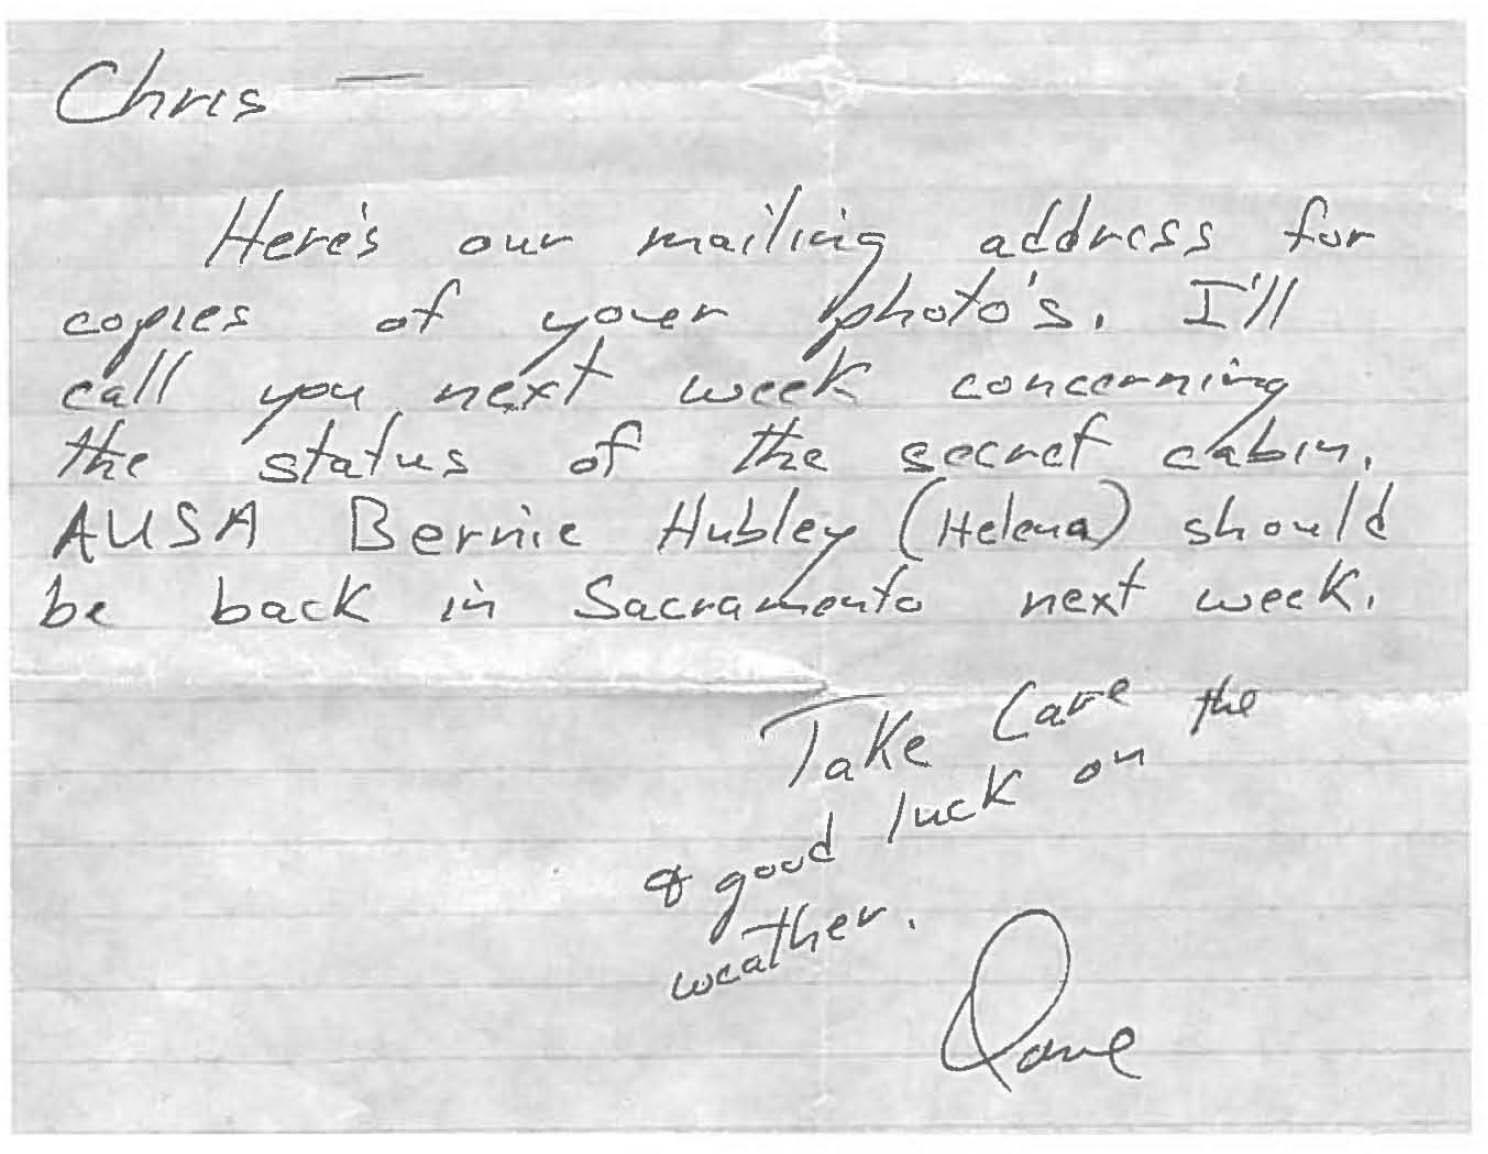 Chris —
Here's our mailing address for
copies of your photo's. I'll
call you next week concerning
the status of the secret cabin.
AUSA Bernie Hubley (Helena) should
be back in Sacramento next week.
Take Care
& good luck on the
weather.
Dave